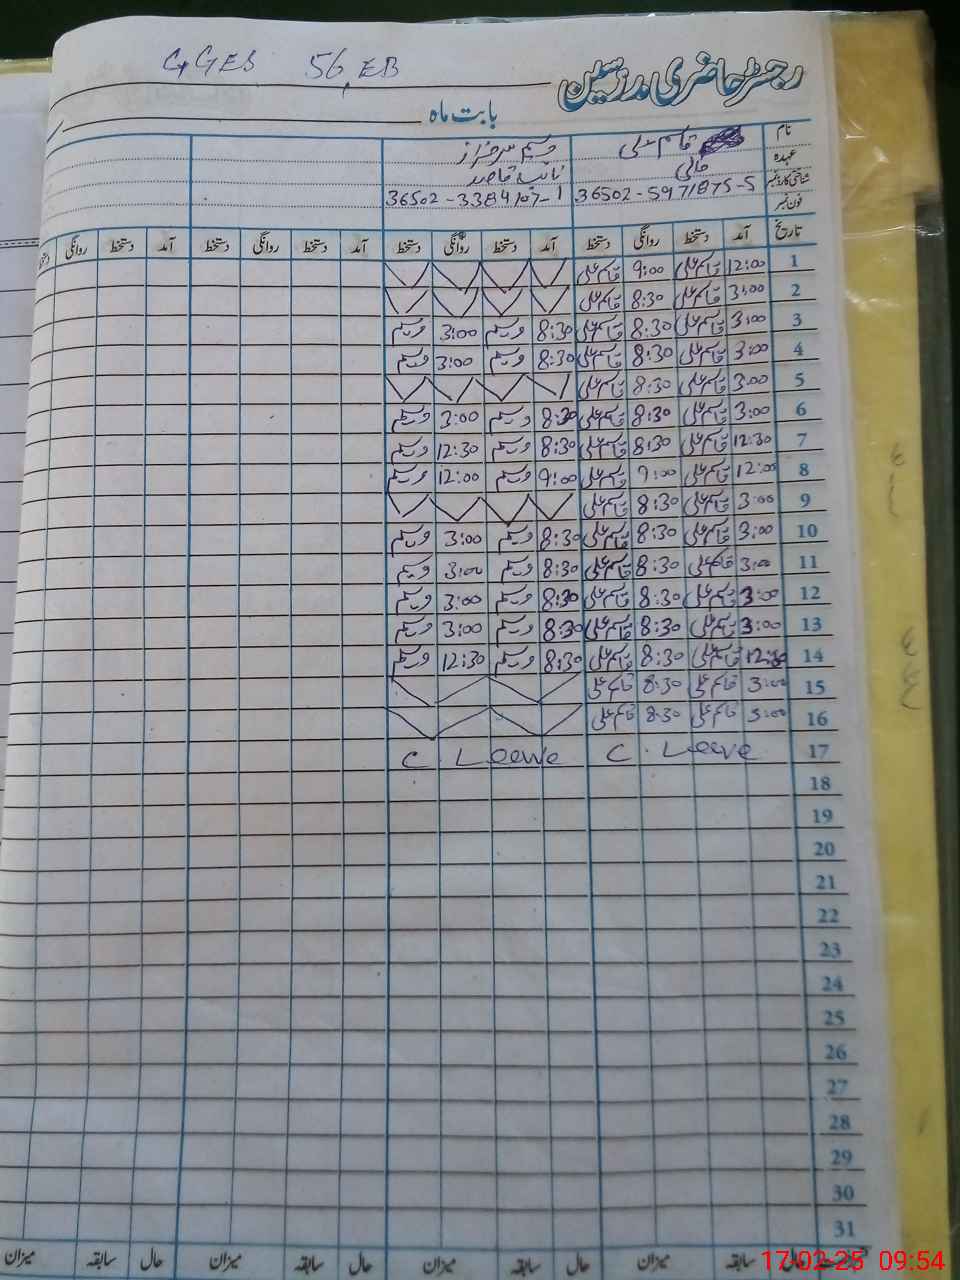 GGES 56 EB
رجسٹر حاضری مدرسین
بابت ماہ
نام قاسم علی وسیم سرفراز
عہدہ مالی نائب قاصد
شناختی کارڈ نمبر 36502-5971875-5
فون نمبر
تاریخ آمد دستخط روانگی دستخط آمد دستخط روانگی دستخط آمد دستخط روانگی دستخط آمد دستخط روانگی دستخط
1 12:00 قاسم علی 9:00 قاسم علی
2 3:00 قاسم علی 8:30 قاسم علی
3 3:00 قاسم علی 8:30 قاسم علی 8:30 وسیم 3:00 وسیم
4 3:00 قاسم علی 8:30 قاسم علی 8:30 وسیم 3:00 وسیم
5 3:00 قاسم علی 8:30 قاسم علی
6 3:00 قاسم علی 8:30 قاسم علی 8:30 وسیم 3:00 وسیم
7 12:30 قاسم علی 8:30 قاسم علی 8:30 وسیم 12:30 وسیم
8 12:00 قاسم علی 9:00 قاسم علی 9:00 وسیم 12:00 وسیم
9 3:00 قاسم علی 8:30 قاسم علی
10 3:00 قاسم علی 8:30 قاسم علی 8:30 وسیم 3:00 وسیم
11 3:00 قاسم علی 8:30 قاسم علی 8:30 وسیم 3:00 وسیم
12 3:00 قاسم علی 8:30 قاسم علی 8:30 وسیم 3:00 وسیم
13 3:00 قاسم علی 8:30 قاسم علی 8:30 وسیم 3:00 وسیم
14 12:30 قاسم علی 8:30 قاسم علی 8:30 وسیم 12:30 وسیم
15 3:00 قاسم علی 8:30 قاسم علی
16 3:00 قاسم علی 8:30 قاسم علی
17 C. Leeve C. Leeve
18
19
20
21
22
23
24
25
26
27
28
29
30
31
حال سابقہ میزان حال سابقہ میزان حال سابقہ میزان حال سابقہ میزان
17-02-25 09:54